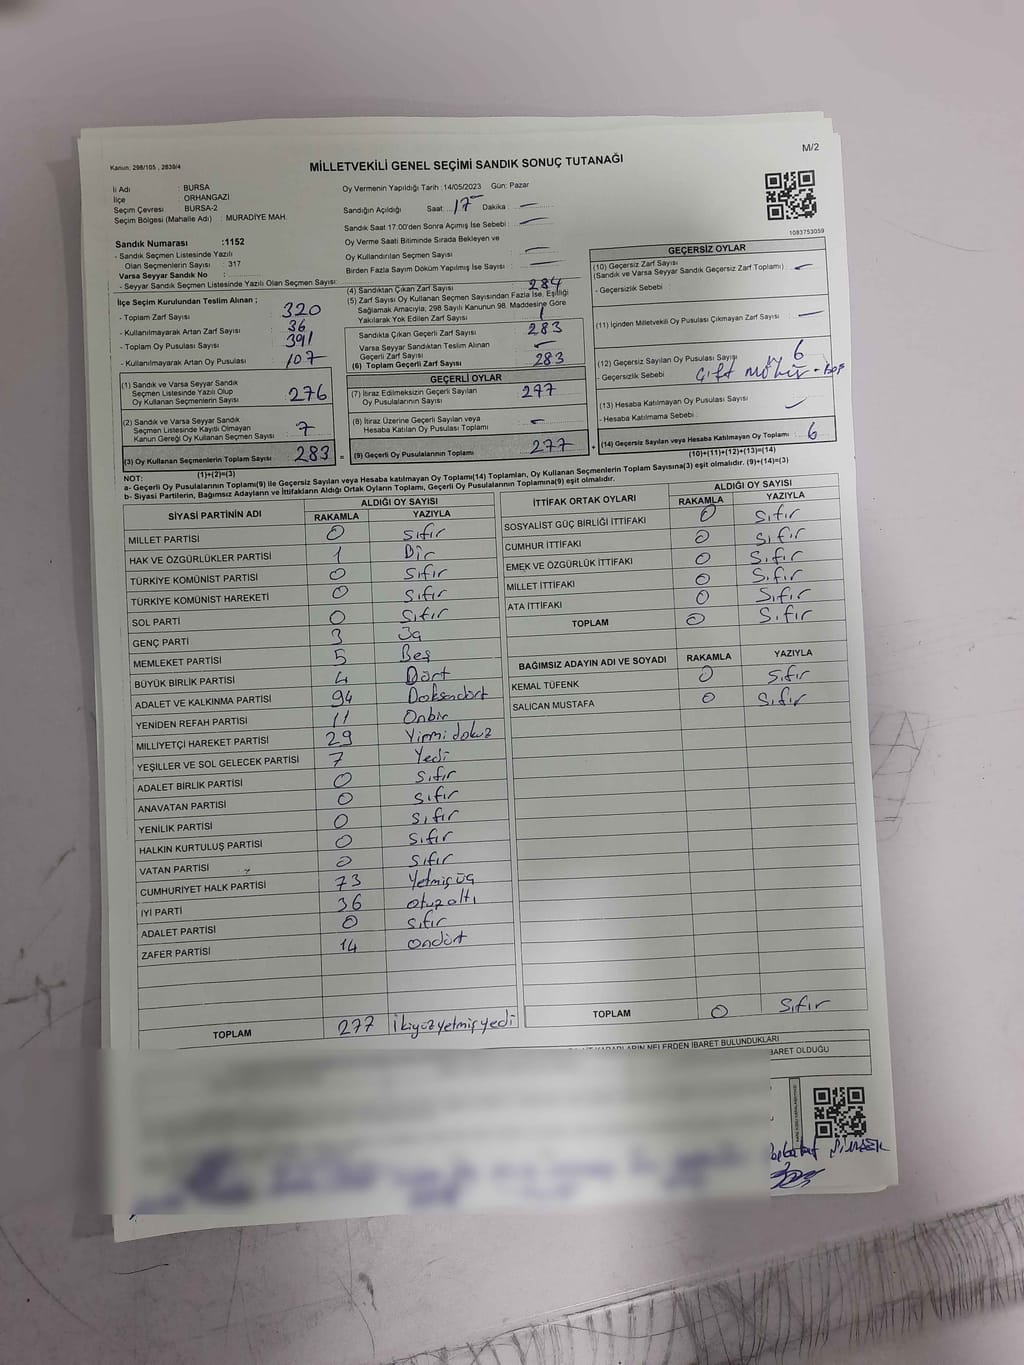 M/2
Kanun: 298/105 , 2839/4
MİLLETVEKİLİ GENEL SEÇİMİ SANDIK SONUÇ TUTANAĞI
İl Adı : BURSA
İlçe : ORHANGAZİ
Seçim Çevresi : BURSA-2
Seçim Bölgesi (Mahalle Adı) : MURADİYE MAH.
Oy Vermenin Yapıldığı Tarih :14/05/2023 Gün: Pazar
Sandığın Açıldığı Saat: 17 Dakika : —
Sandık Saat 17.00'den Sonra Açımış İse Sebebi : —
Oy Verme Saati Bitiminde Sırada Bekleyen ve
Oy Kullandırılan Seçmen Sayısı : —
Birden Fazla Sayım Döküm Yapılmış İse Sayısı : —
1083753059
Sandık Numarası :1152
- Sandık Seçmen Listesinde Yazılı
Olan Seçmenlerin Sayısı : 317
Varsa Seyyar Sandık No :
- Seyyar Sandık Seçmen Listesinde Yazılı Olan Seçmen Sayısı:
İlçe Seçim Kurulundan Teslim Alınan ;
- Toplam Zarf Sayısı : 320
- Kullanılmayarak Artan Zarf Sayısı : 36
- Toplam Oy Pusulası Sayısı : 391
- Kullanılmayarak Artan Oy Pusulası : 107
(1) Sandık ve Varsa Seyyar Sandık
Seçmen Listesinde Yazılı Olup
Oy Kullanan Seçmenlerin Sayısı : 276
(2) Sandık ve Varsa Seyyar Sandık
Seçmen Listesinde Kayıtlı Olmayan
Kanun Gereği Oy Kullanan Seçmen Sayısı : 7
(3) Oy Kullanan Seçmenlerin Toplam Sayısı : 283
(1)+(2)=(3)
(4) Sandıktan Çıkan Zarf Sayısı : 284
(5) Zarf Sayısı Oy Kullanan Seçmen Sayısından Fazla İse, Eşitliği
Sağlamak Amacıyla, 298 Sayılı Kanunun 98. Maddesine Göre
Yakılarak Yok Edilen Zarf Sayısı : 1
Sandıkta Çıkan Geçerli Zarf Sayısı : 283
Varsa Seyyar Sandıktan Teslim Alınan
Geçerli Zarf Sayısı : —
(6) Toplam Geçerli Zarf Sayısı : 283
GEÇERLİ OYLAR
(7) İtiraz Edilmeksizin Geçerli Sayılan
Oy Pusulalarının Sayısı : 277
(8) İtiraz Üzerine Geçerli Sayılan veya
Hesaba Katılan Oy Pusulası Toplamı : —
(9) Geçerli Oy Pusulalarının Toplamı : 277
GEÇERSİZ OYLAR
(10) Geçersiz Zarf Sayısı
(Sandık ve Varsa Seyyar Sandık Geçersiz Zarf Toplamı) : —
- Geçersizlik Sebebi :
(11) İçinden Milletvekili Oy Pusulası Çıkmayan Zarf Sayısı : —
(12) Geçersiz Sayılan Oy Pusulası Sayısı : 6
- Geçersizlik Sebebi : çift mühür -
(13) Hesaba Katılmayan Oy Pusulası Sayısı : —
- Hesaba Katılmama Sebebi :
(14) Geçersiz Sayılan veya Hesaba Katılmayan Oy Toplamı : 6
(10)+(11)+(12)+(13)=(14)
NOT:
a- Geçerli Oy Pusulalarının Toplamı(9) ile Geçersiz Sayılan veya Hesaba katılmayan Oy Toplamı(14) Toplamları, Oy Kullanan Seçmenlerin Toplam Sayısına(3) eşit olmalıdır. (9)+(14)=(3)
b- Siyasi Partilerin, Bağımsız Adayların ve İttifakların Aldığı Ortak Oyların Toplamı, Geçerli Oy Pusulalarının Toplamına(9) eşit olmalıdır.
SİYASİ PARTİNİN ADI ALDIĞI OY SAYISI
RAKAMLA YAZIYLA
MİLLET PARTİSİ 0 sıfır
HAK VE ÖZGÜRLÜKLER PARTİSİ 1 Bir
TÜRKİYE KOMÜNİST PARTİSİ 0 sıfır
TÜRKİYE KOMÜNİST HAREKETİ 0 sıfır
SOL PARTİ 0 sıfır
GENÇ PARTİ 3 Üç
MEMLEKET PARTİSİ 5 Beş
BÜYÜK BİRLİK PARTİSİ 4 Dört
ADALET VE KALKINMA PARTİSİ 94 Doksandört
YENİDEN REFAH PARTİSİ 11 Onbir
MİLLİYETÇİ HAREKET PARTİSİ 29 Yirmi dokuz
YEŞİLLER VE SOL GELECEK PARTİSİ 7 Yedi
ADALET BİRLİK PARTİSİ 0 sıfır
ANAVATAN PARTİSİ 0 sıfır
YENİLİK PARTİSİ 0 sıfır
HALKIN KURTULUŞ PARTİSİ 0 sıfır
VATAN PARTİSİ 0 sıfır
CUMHURİYET HALK PARTİSİ 73 Yetmişüç
İYİ PARTİ 36 otuzaltı
ADALET PARTİSİ 0 sıfır
ZAFER PARTİSİ 14 ondört
TOPLAM 277 İkiyüzyetmişyedi
İTTİFAK ORTAK OYLARI ALDIĞI OY SAYISI
RAKAMLA YAZIYLA
SOSYALİST GÜÇ BİRLİĞİ İTTİFAKI 0 sıfır
CUMHUR İTTİFAKI 0 sıfır
EMEK VE ÖZGÜRLÜK İTTİFAKI 0 sıfır
MİLLET İTTİFAKI 0 sıfır
ATA İTTİFAKI 0 sıfır
TOPLAM 0 sıfır
BAĞIMSIZ ADAYIN ADI VE SOYADI RAKAMLA YAZIYLA
KEMAL TÜFENK 0 sıfır
SALİCAN MUSTAFA 0 sıfır
TOPLAM 0 sıfır
KARARLARIN NELERDEN İBARET BULUNDUKLARI
İBARET OLDUĞU